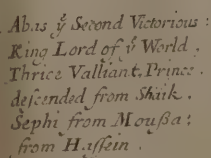 Ab:is yͤ Second Victorious:
King Lord of yͤ World.
Thrice Valliant. Prince.
deſcended from Shaik.
Sephi from Moußa:
from Haſſein.